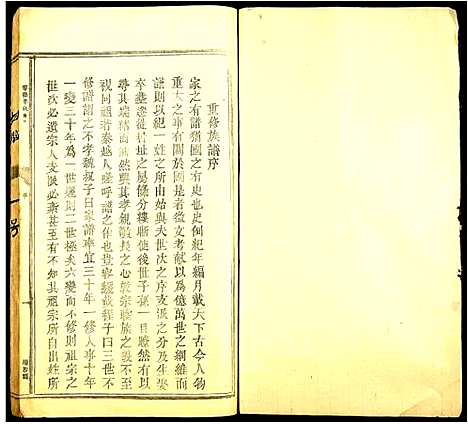 重修族譜序
家之有譜猶國之有史也史何紀年編月載天下古今人物
重大之事譜何錄支分派衍徵文考獻以為億萬世之綱維而
譜則以紀一姓之所由始與夫世次之序支派之分及生娶
卒葬遷徙居址之屬條分縷晰使後世子孫一目瞭然有以
尋其端緒而油然興其孝親敬長之心敦宗聯族之誼不至
視同祖者秦越人嗟呼譜之作也豈容緩哉程子曰三世不
修譜謂之不孝魏叔子曰家譜率宜三十年一修人事十年
一變三十年為一世遲則二世極矣六變而不修則祖宗之
世次必遺宗人支派必紊甚至有不知其祖宗所自出姓所